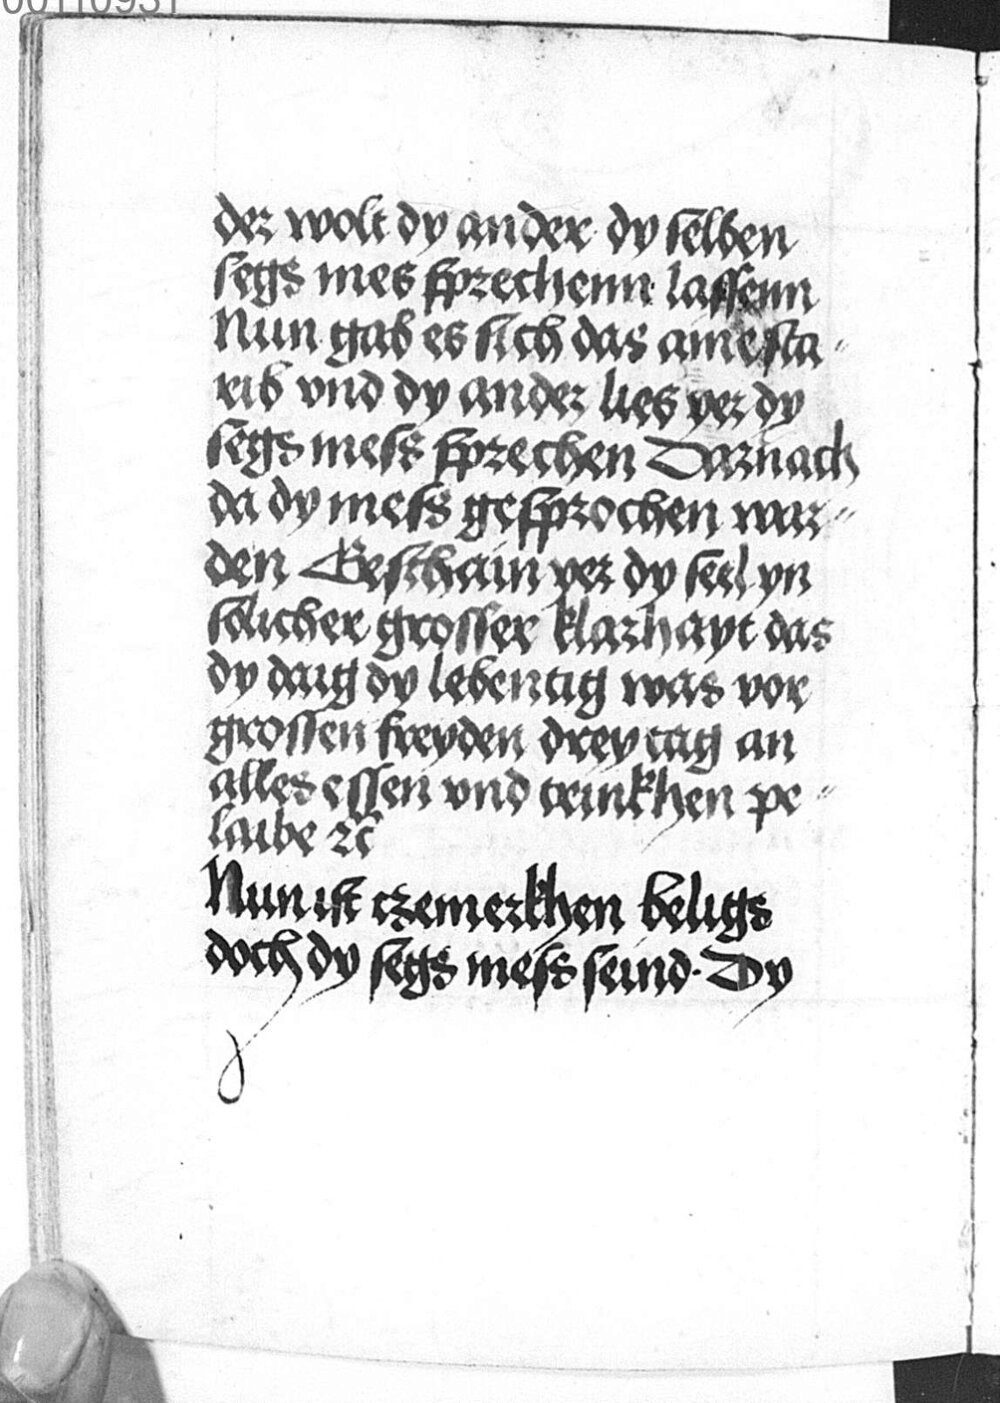 00110931
der wolt dy ander dy selben
segs mes sprechenn lassenn
Nun gab es sich das aine sta
rib vnd dy ander lies yer dy
segs mess sprechen Darnach
da dy mess gesprochen war
den Geschain yer dy seel yn
solicher grosser klarhayt das
dy daig dy lebentig was vor
grossen freyden drey tag an
alles essen vnd trinkhen pe
laibe ꝛc̃
Nun ist czemerkhen beligs
doch dy segs mess seind · Dy